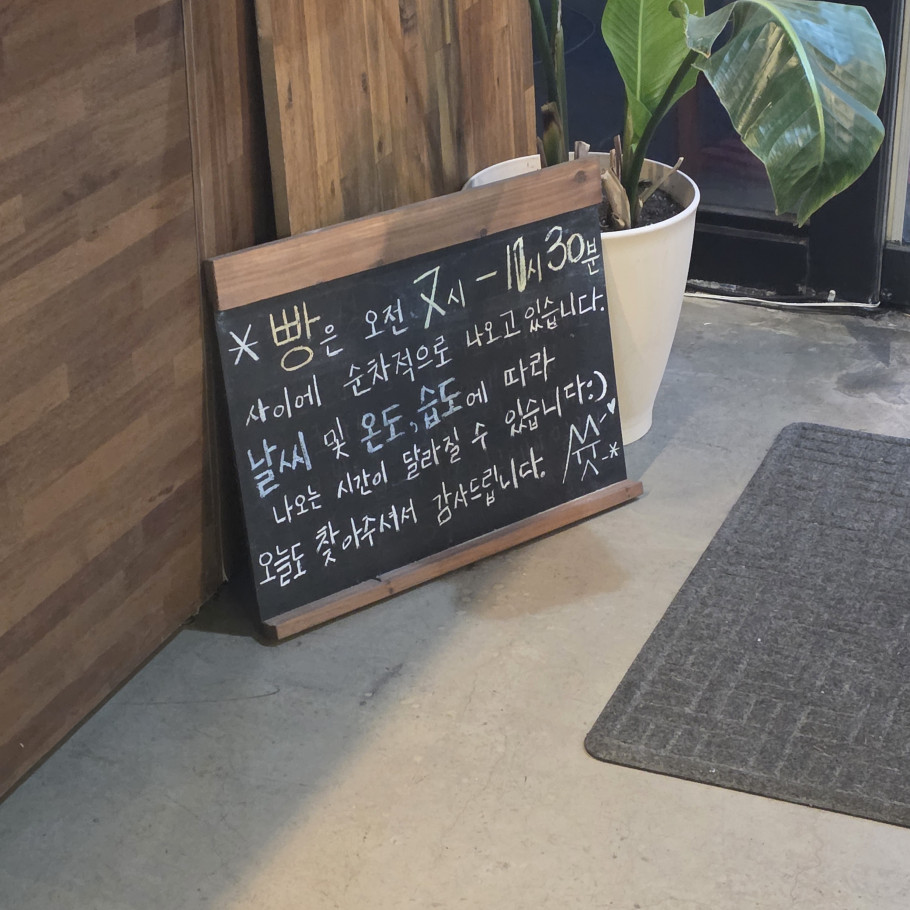 * 빵은 오전 7시 - 11시 30분
사이에 순차적으로 나오고 있습니다.
날씨 및 온도, 습도에 따라
나오는 시간이 달라질 수 있습니다:)
오늘도 찾아주셔서 감사드립니다.